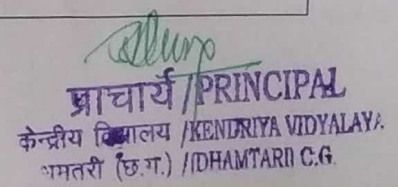 प्राचार्य /PRINCIPAL
केन्द्रीय विद्यालय /KENDRIYA VIDYALAYA
धमतरी (छ.ग.) /DHAMTARI C.G.